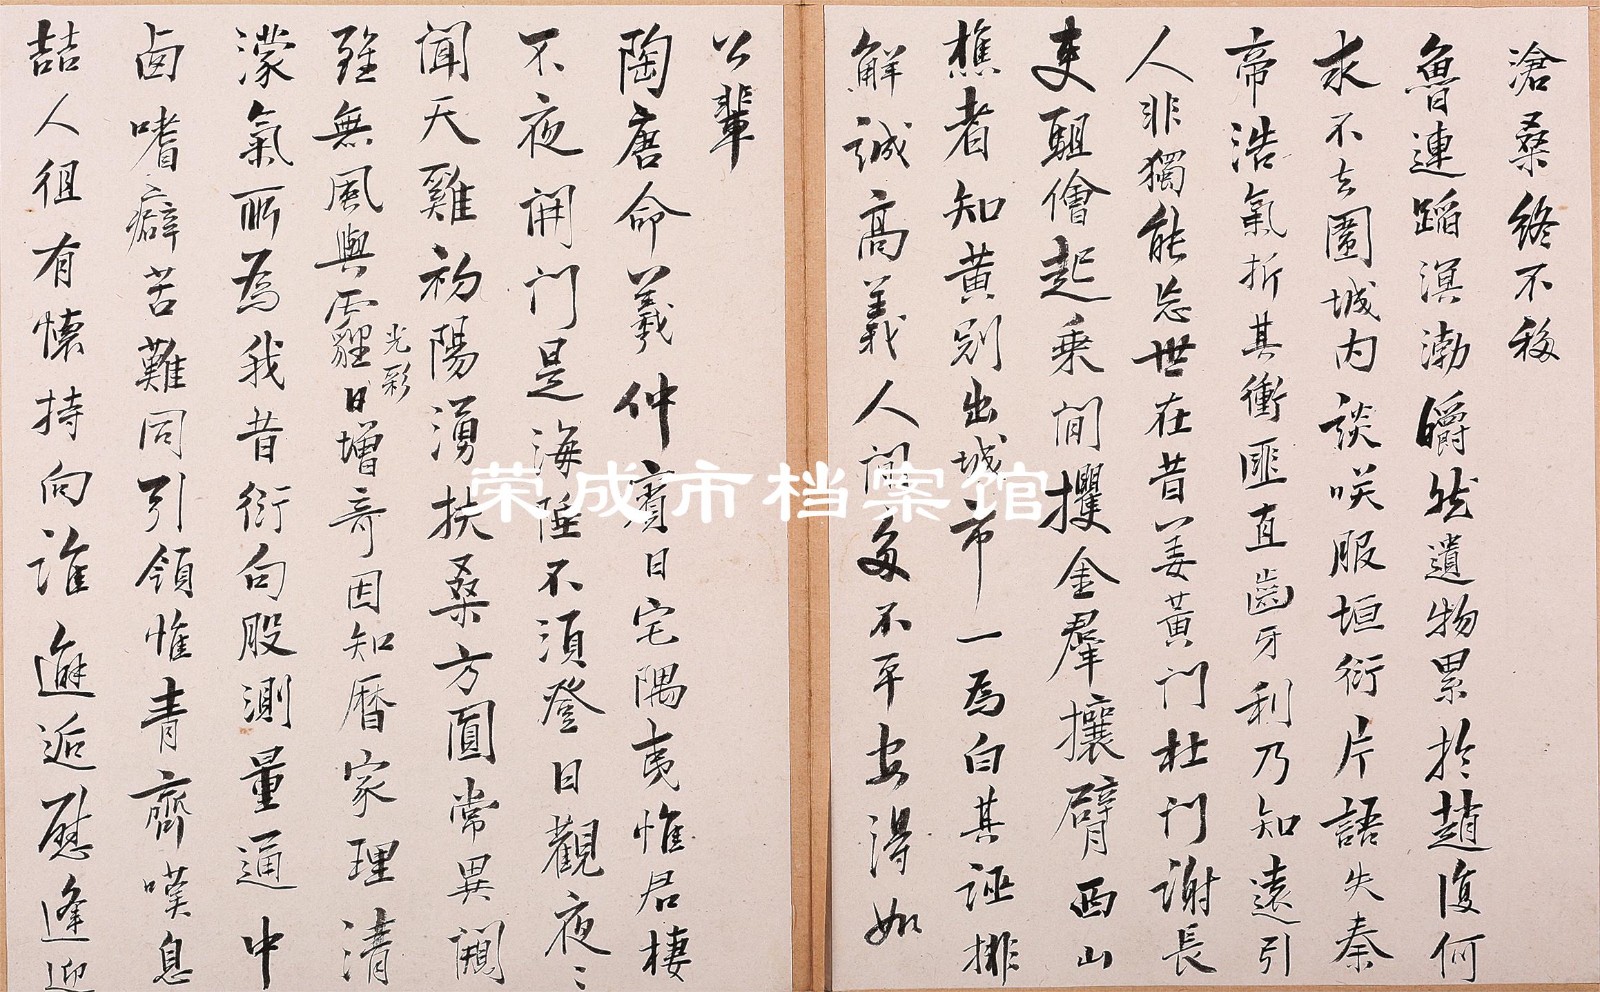 滄桑終不移
魯連蹈溟渤皭然遺物累於趙復何
求不去圍城内談笑服垣衍片語失秦
帝浩氣折其衝匪直齒牙利乃知遠引
人非獨能忘世在昔姜黃門杜門謝長
吏駔儈起乘間攫金群攘臂西山
樵者知黃別出城市一為白其誣排
解誠高義人間多不平安得如
公輩
陶唐命羲仲賓日宅隅夷惟君棲
不夜開門是海陲不須登日觀夜〻
聞天雞初陽湧扶桑方圓常異闚
雖無風與霾光彩日增奇因知曆家理清
濛氣所為我昔衍句股測量通中
西嗜癖苦難同引領惟青齊嘆息
喆人徂有懷持向誰邂逅慰逢迎
荣成市档案馆